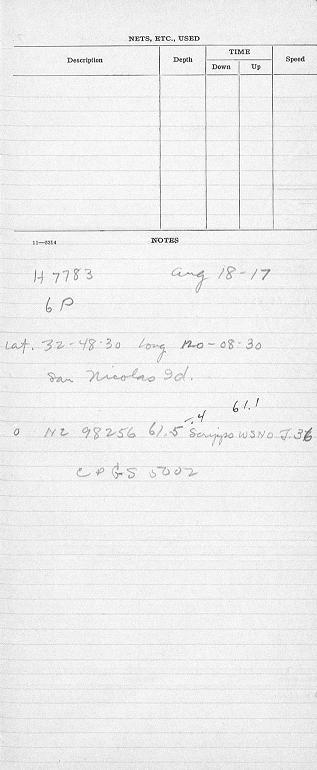 NETS, ETC., USED
Description Depth TIME Speed
Down Up
11—5214 NOTES
H 7783 Aug 18-17
6 P
Lat. 32-48-30 Long 120-08-30
San Nicolas Id.
61.1
-.4
0 N2 98256 61.5 Scripps WSNO J.36
C P G S 5002